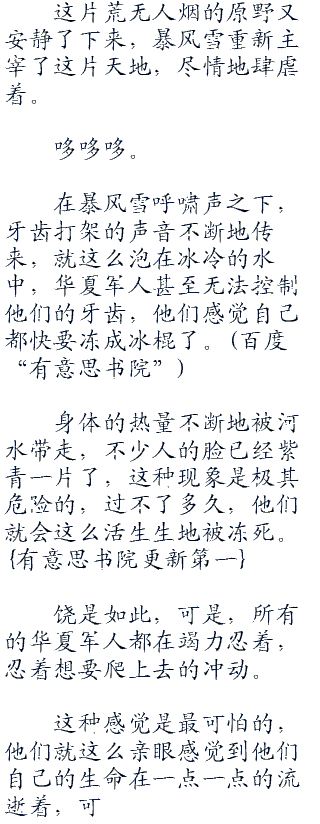 这片荒无人烟的原野又
安静了下来，暴风雪重新主
宰了这片天地，尽情地肆虐
着。
哆哆哆。
在暴风雪呼啸声之下，
牙齿打架的声音不断地传
来，就这么泡在冰冷的水
中，华夏军人甚至无法控制
他们的牙齿，他们感觉自己
都快要冻成冰棍了。(百度
“有意思书院”)
身体的热量不断地被河
水带走，不少人的脸已经紫
青一片了，这种现象是极其
危险的，过不了多久，他们
就会这么活生生地被冻死。
{有意思书院更新第一}
饶是如此，可是，所有
的华夏军人都在竭力忍着，
忍着想要爬上去的冲动。
这种感觉是最可怕的，
他们就这么亲眼感觉到他们
自己的生命在一点一点的流
逝着，可